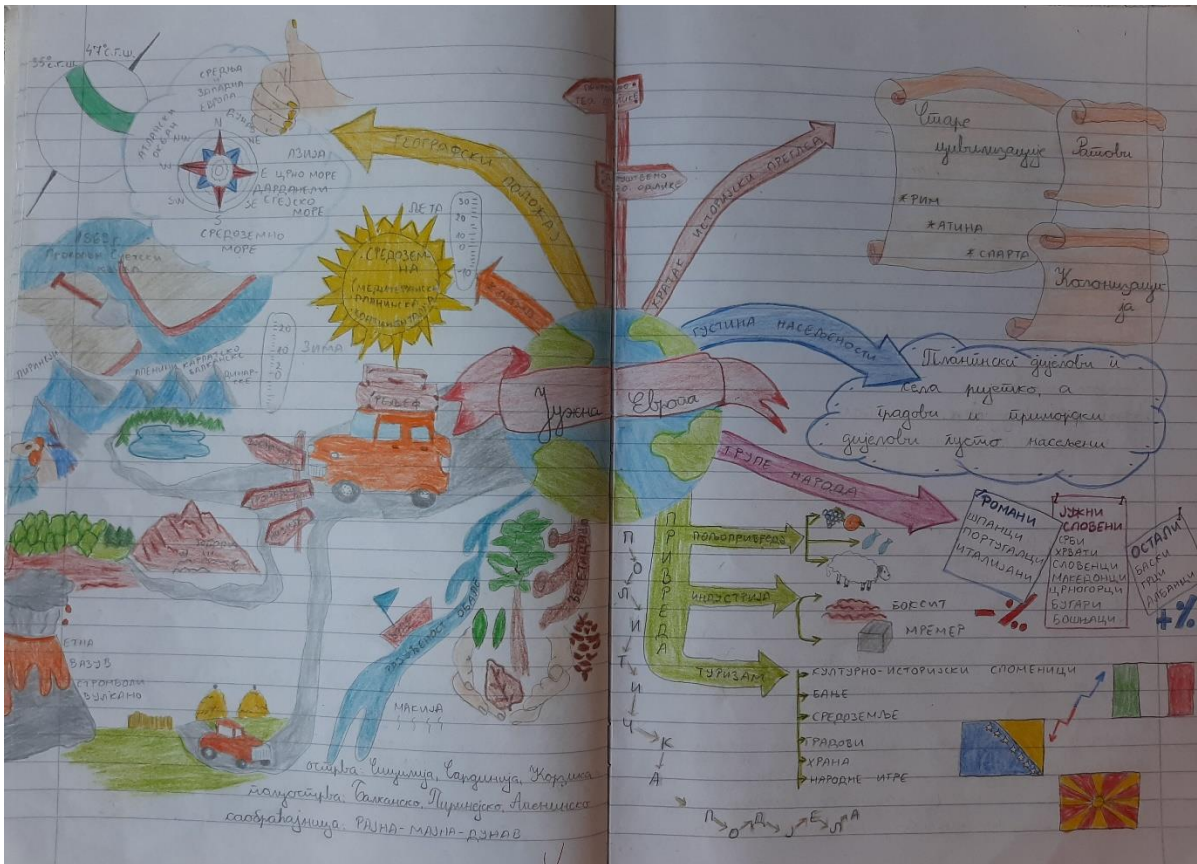 35° с.г.ш.
47° с.г.ш.
СРЕДЊА
ЗАПАДНА
ЕВРОПА
АТЛАНТСКИ
ОКЕАН
N
NW
NE
АЗИЈА
E ЦРНО МОРЕ
ДАРДАНЕЛИ
SW
S
SE ЕГЕЈСКО
МОРЕ
СРЕДОЗЕМНО
МОРЕ
ГЕОГРАФСКИ ПОЛОЖАЈ
1869 г.
Прокопан Суецки
канал
ЛЕТА
30
20
10
0
-10
КЛИМА
СРЕДОЗЕМ
НА
(МЕДИТЕРАНСКА)
ПЛАНИНСКА
КОНТИНЕНТАЛНА
ЗИМА
20
10
2
0
ПИРИНЕЈИ
АПЕНИНИ
КАРПАТСКО
БАЛКАНСКЕ
ДИНАРСКЕ
РЕЉЕФ
Јужна Европа
ЕТНА
ВЕЗУВ
СТРОМБОЛИ
ВУЛКАНО
РАЗУЂЕНОСТ ОБАЛЕ
ВЕГЕТАЦИЈА
МАКИЈА
острва: Сицилија, Сардинија, Корзика
полуострва: Балканско, Пиринејско, Апенинско
саобраћајница: РАЈНА-МАЈНА-ДУНАВ
КРАТАК ИСТОРИЈСКИ ПРЕГЛЕД
Старе
цивилизације
* РИМ
* АТИНА
* СПАРТА
Ратови
Колонизаци
ја
ГУСТИНА НАСЕЉЕНОСТИ
Планински дијелови и
села ријетко, а
градови и приморски
дијелови густо насељени
ГРУПЕ НАРОДА
РОМАНИ
ШПАНЦИ
ПОРТУГАЛЦИ
ИТАЛИЈАНИ
ЈУЖНИ
СЛОВЕНИ
СРБИ
ХРВАТИ
СЛОВЕНЦИ
МАКЕДОНЦИ
ЦРНОГОРЦИ
БУГАРИ
БОШЊАЦИ
ОСТАЛИ
БАСКИ
ГРЦИ
АЛБАНЦИ
- %
+ %
ПРИВРЕДА
ПОЉОПРИВРЕДА
ИНДУСТРИЈА
БОКСИТ
МРЕМЕР
ТУРИЗАМ
КУЛТУРНО-ИСТОРИЈСКИ СПОМЕНИЦИ
БАЊЕ
СРЕДОЗЕМЉЕ
ГРАДОВИ
ХРАНА
НАРОДНЕ ИГРЕ
ПОЛИТИЧКА
ПОДЈЕЛА